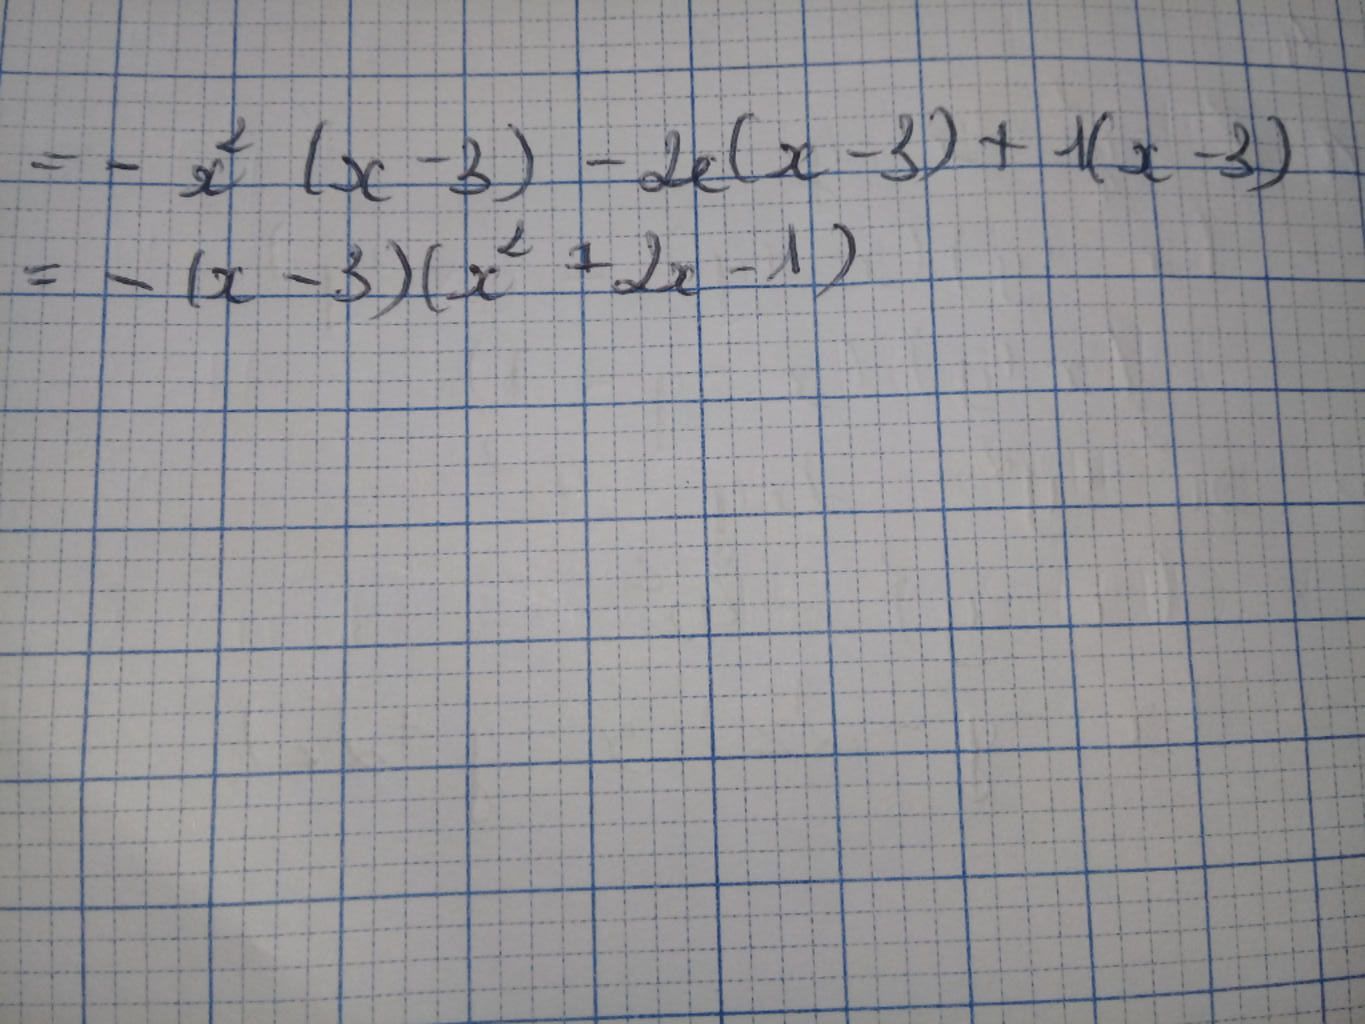 = - x² (x - 3) - 2x(x - 3) + 1(x - 3)
= - (x - 3)(x² + 2x - 1)